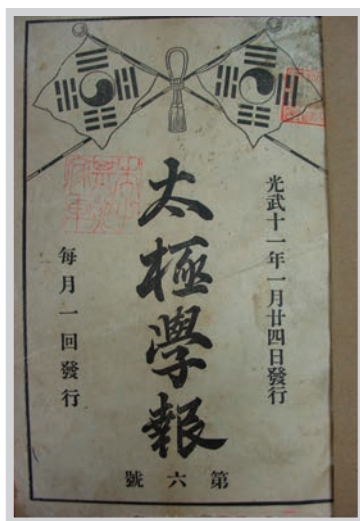 光武十一年一月廿四日發行
太極學報
每月一回發行
第六號